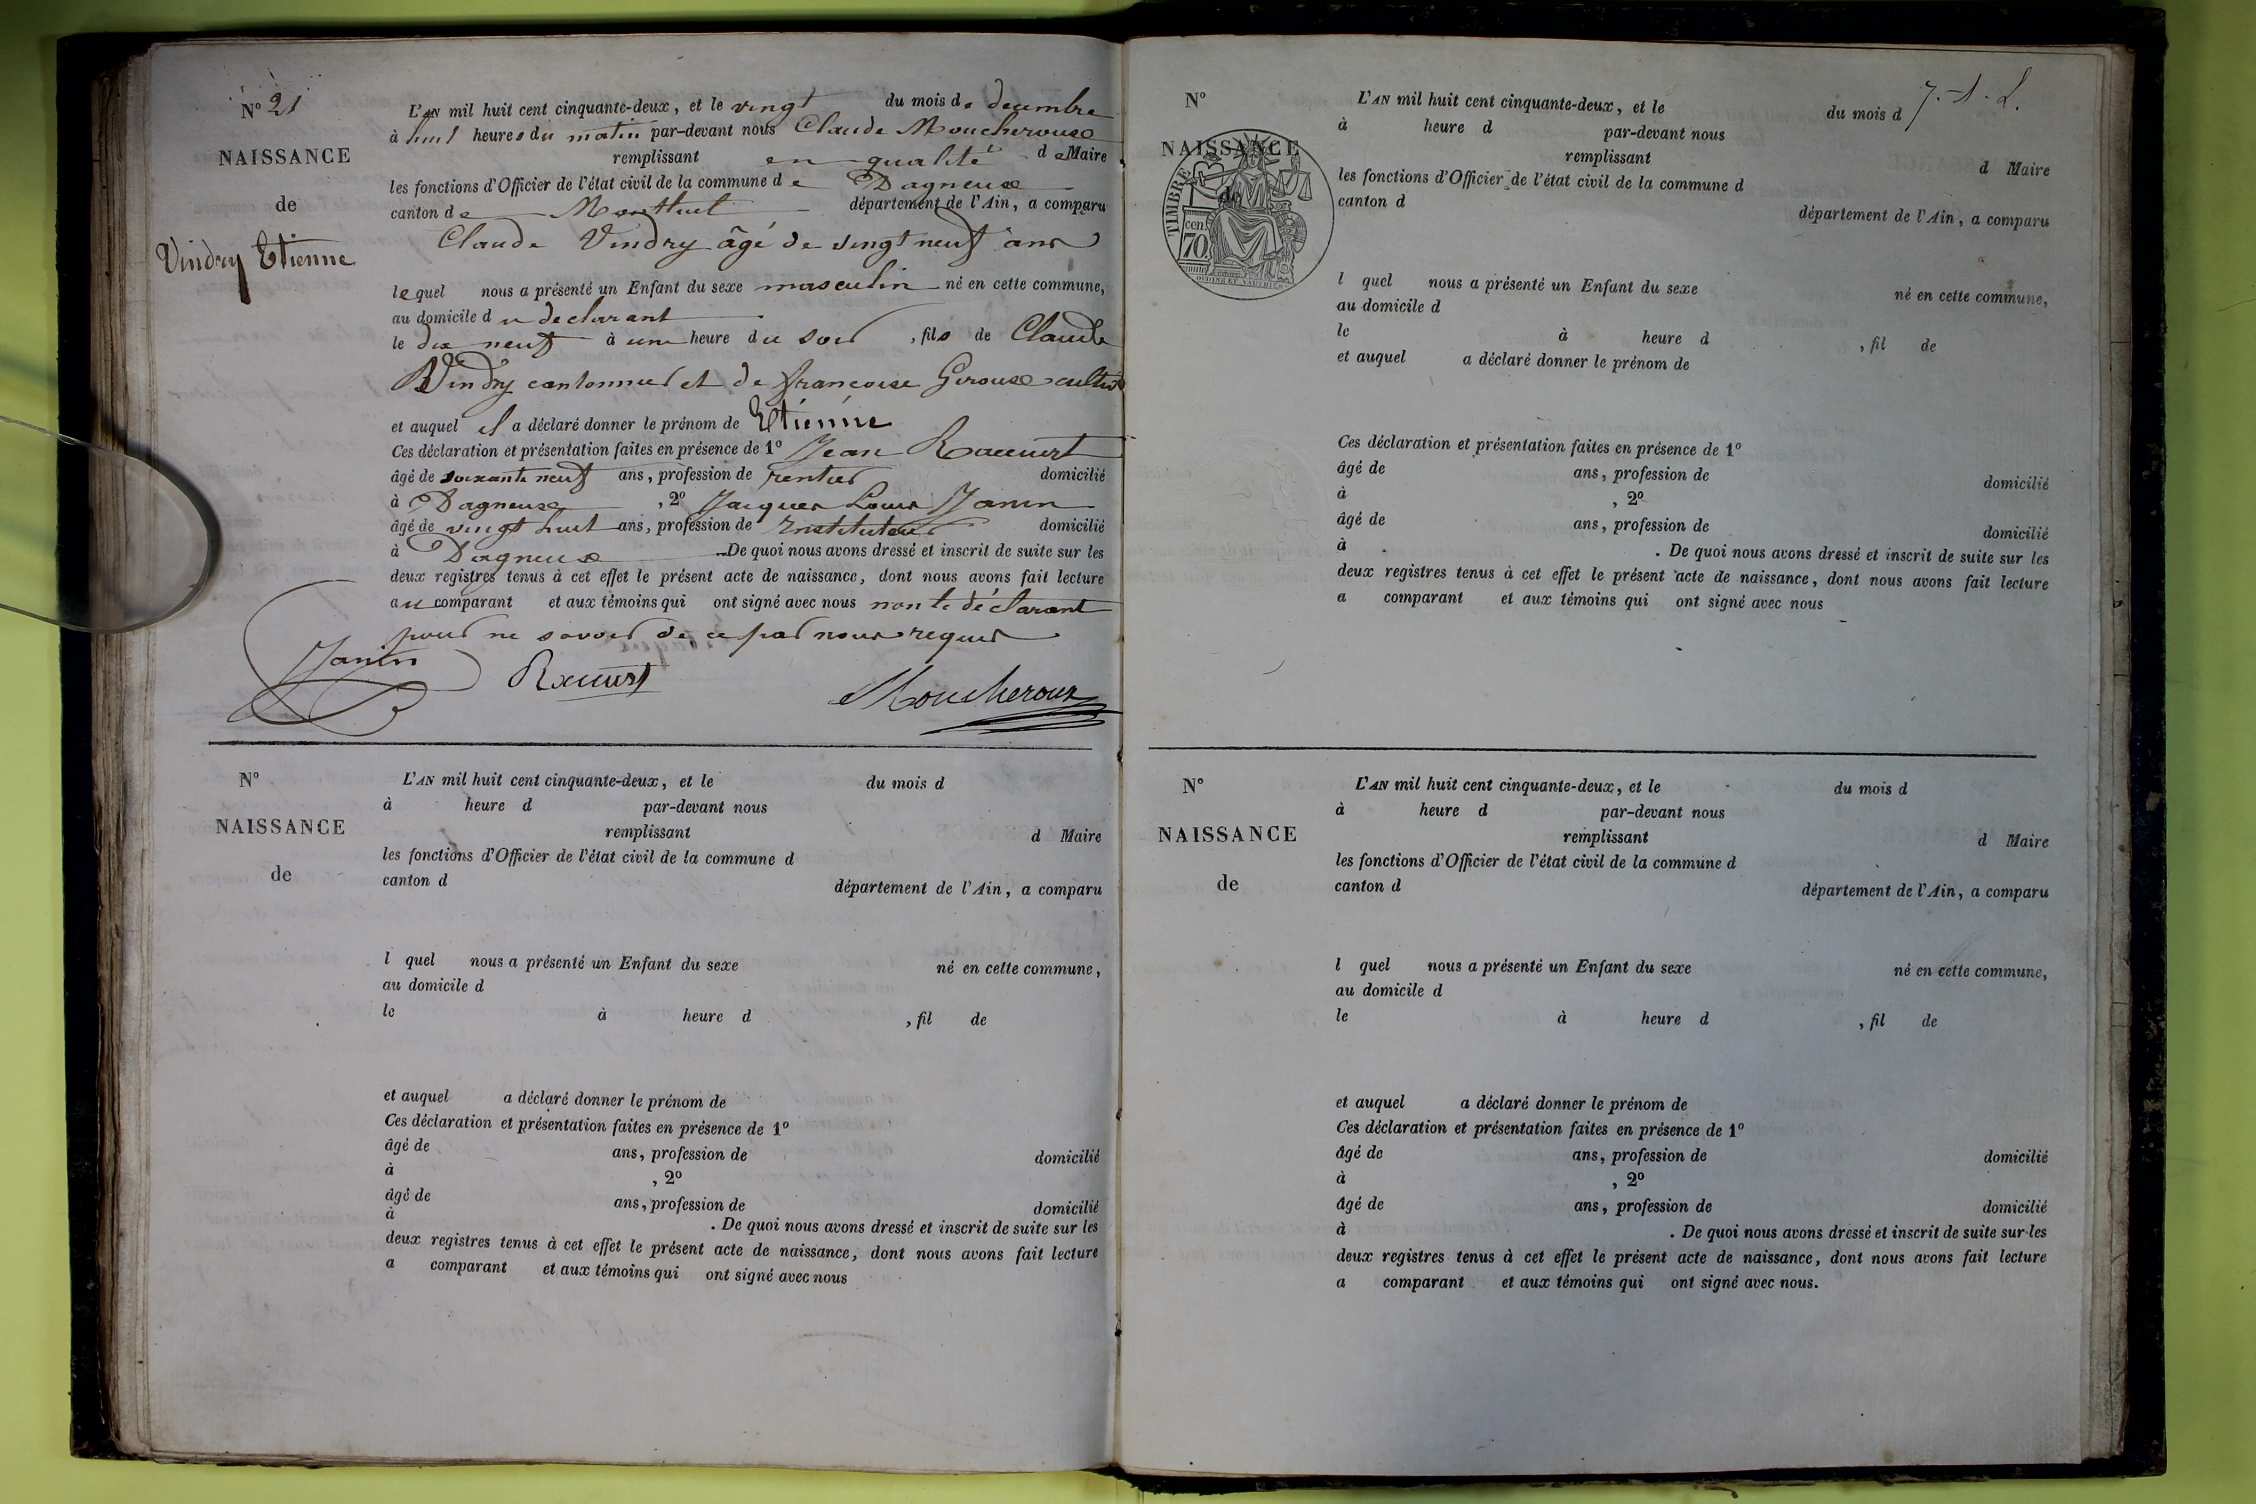 N° 21
NAISSANCE
de
Vindry Etienne
L'AN mil huit cent cinquante-deux, et le vingt du mois de decembre
à huit heures du matin par-devant nous Claude Moucheroux
remplissant en qualité de Maire
les fonctions d'Officier de l'état civil de la commune de Dagneux
canton de Montluel département de l'Ain, a comparu
Claude Vindry âgé de vingt neuf ans
lequel nous a présenté un Enfant du sexe masculin né en cette commune,
au domicile du declarant
le dix neuf à une heure du soir, fils de Claude
Vindry cantonnier et de françoise Giroux
et auquel il a déclaré donner le prénom de Etienne
Ces déclaration et présentation faites en présence de 1° Jean Raccurt
âgé de soixante neuf ans, profession de rentier domicilié
à Dagneux, 2° Jacques Louis Janin
âgé de vingt huit ans, profession de Instituteur domicilié
à Dagneux De quoi nous avons dressé et inscrit de suite sur les
deux registres tenus à cet effet le présent acte de naissance, dont nous avons fait lecture
au comparant et aux témoins qui ont signé avec nous non le déclarant
pour ne savoir de ce par nous requis
Janin Raccurt Moucheroux
N°
NAISSANCE
de
L'AN mil huit cent cinquante-deux, et le du mois d
à heure d par-devant nous
remplissant d Maire
les fonctions d'Officier de l'état civil de la commune d
canton d département de l'Ain, a comparu
l quel nous a présenté un Enfant du sexe né en cette commune,
au domicile d
le à heure d , fil de
et auquel a déclaré donner le prénom de
Ces déclaration et présentation faites en présence de 1°
âgé de ans, profession de domicilié
à , 2°
âgé de ans, profession de domicilié
à . De quoi nous avons dressé et inscrit de suite sur les
deux registres tenus à cet effet le présent acte de naissance, dont nous avons fait lecture
a comparant et aux témoins qui ont signé avec nous
7. A. L.
N°
NAISSANCE
de
TIMBRE
70
cen
L'AN mil huit cent cinquante-deux, et le du mois d
à heure d par-devant nous
remplissant d Maire
les fonctions d'Officier de l'état civil de la commune d
canton d département de l'Ain, a comparu
l quel nous a présenté un Enfant du sexe né en cette commune,
au domicile d
le à heure d , fil de
et auquel a déclaré donner le prénom de
Ces déclaration et présentation faites en présence de 1°
âgé de ans, profession de domicilié
à , 2°
âgé de ans, profession de domicilié
à . De quoi nous avons dressé et inscrit de suite sur les
deux registres tenus à cet effet le présent acte de naissance, dont nous avons fait lecture
a comparant et aux témoins qui ont signé avec nous
N°
NAISSANCE
de
L'AN mil huit cent cinquante-deux, et le du mois d
à heure d par-devant nous
remplissant d Maire
les fonctions d'Officier de l'état civil de la commune d
canton d département de l'Ain, a comparu
l quel nous a présenté un Enfant du sexe né en cette commune,
au domicile d
le à heure d , fil de
et auquel a déclaré donner le prénom de
Ces déclaration et présentation faites en présence de 1°
âgé de ans, profession de domicilié
à , 2°
âgé de ans, profession de domicilié
à . De quoi nous avons dressé et inscrit de suite sur les
deux registres tenus à cet effet le présent acte de naissance, dont nous avons fait lecture
a comparant et aux témoins qui ont signé avec nous.